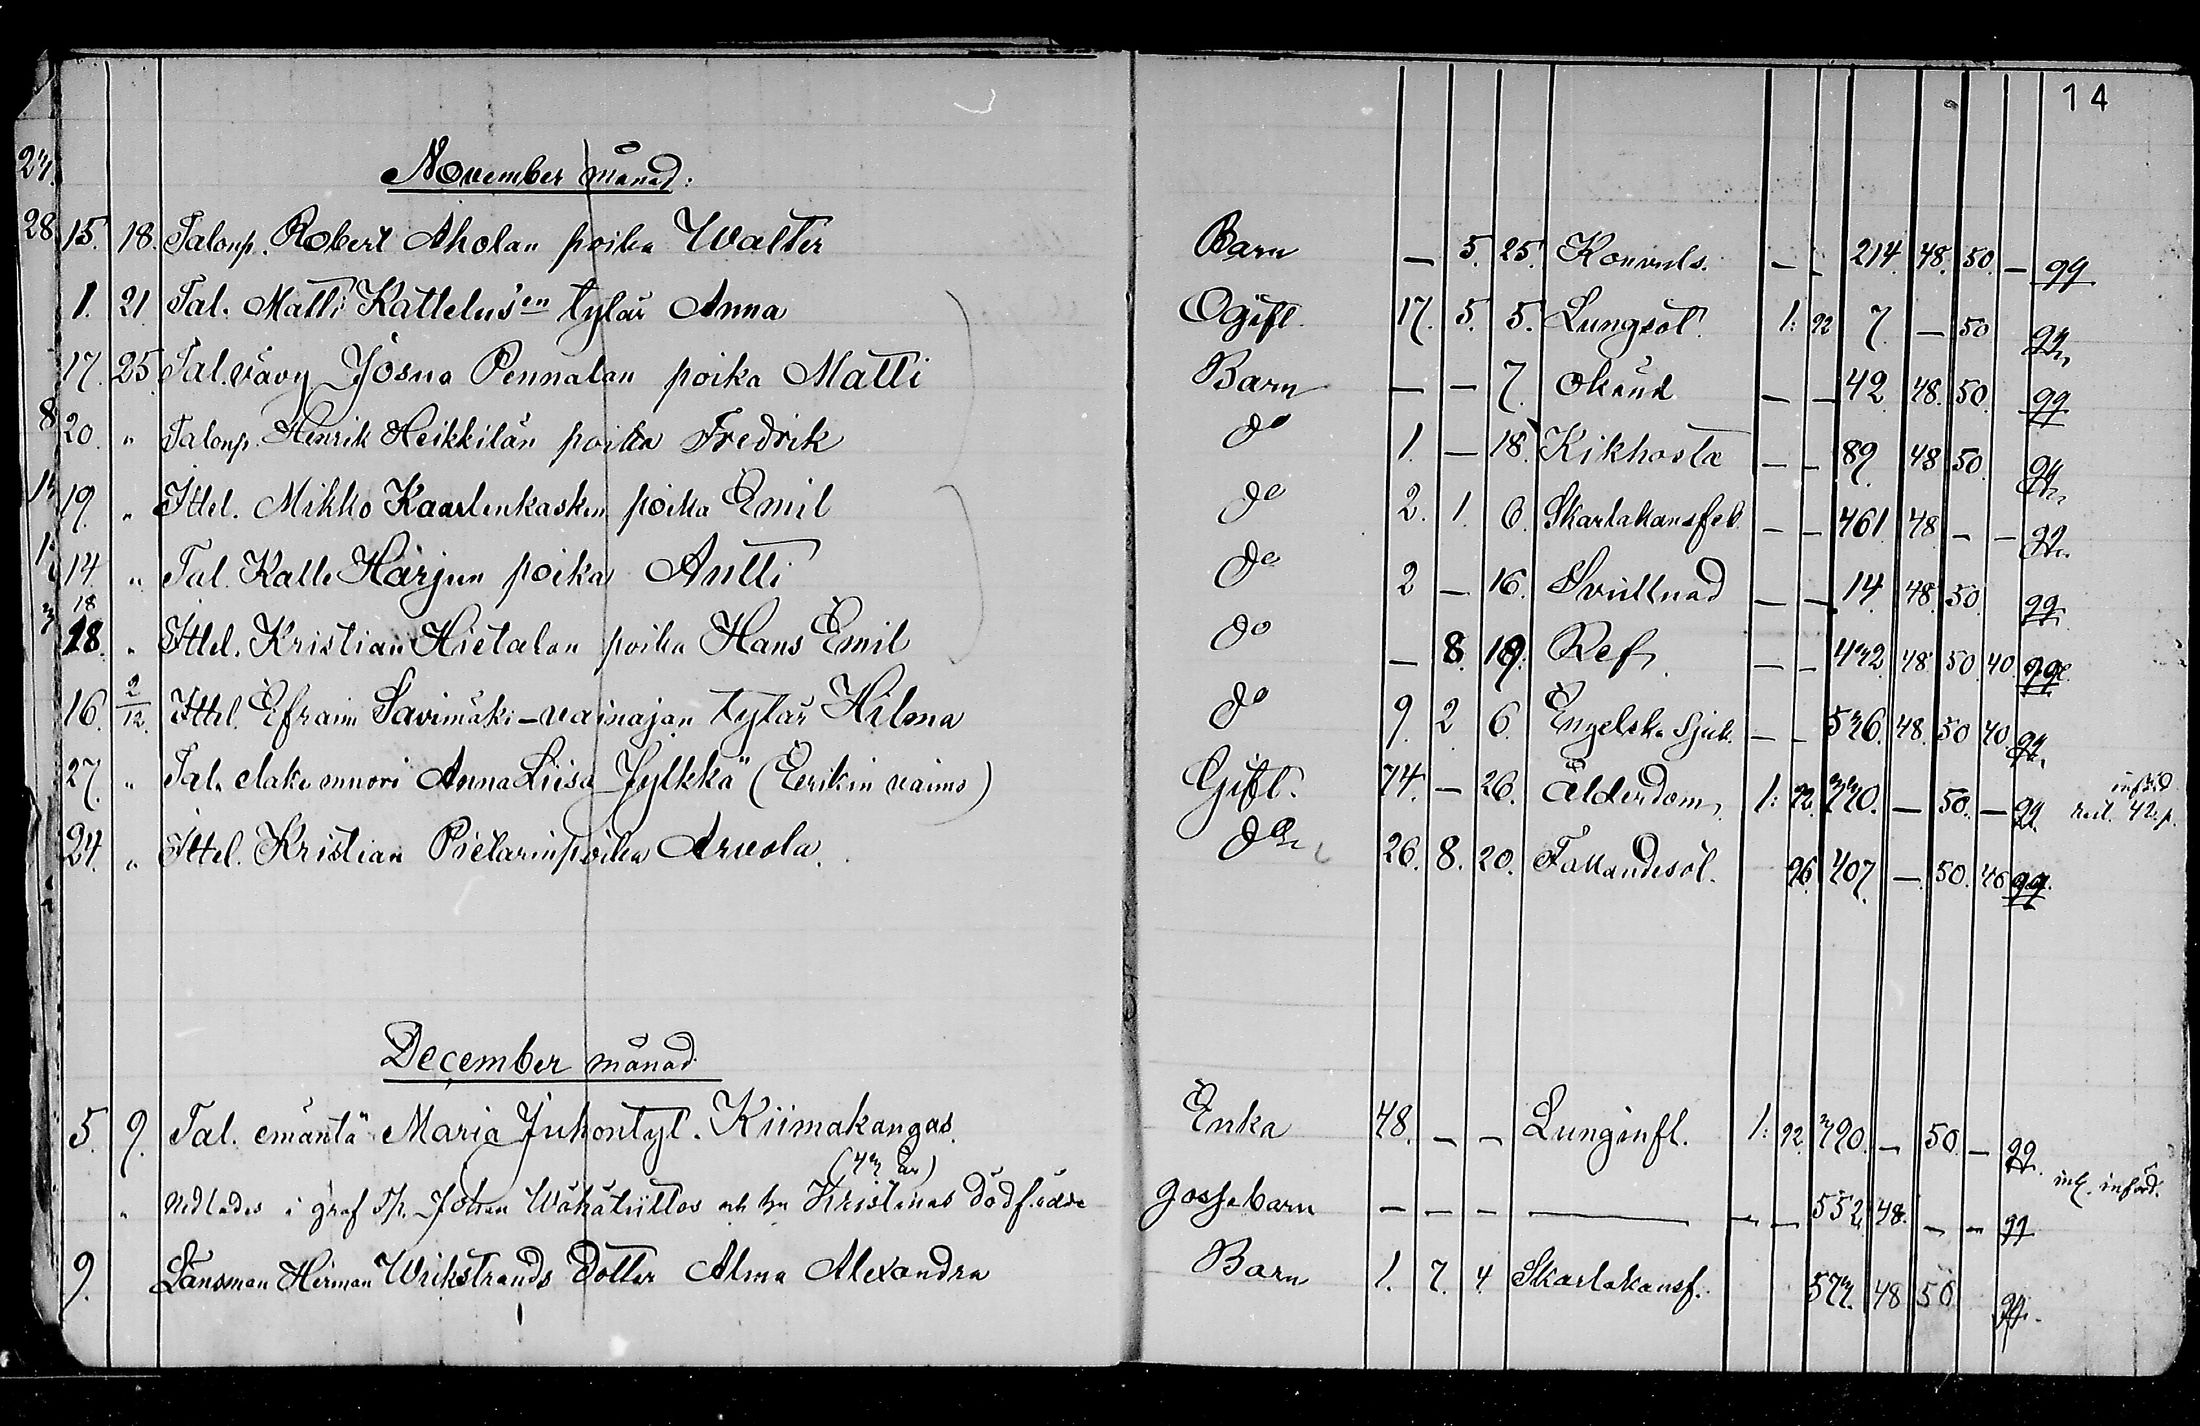 14
November månad:
15. 18. Talonp. Robert Aholan poika Walter Barn — 5. 25. Konvuls. — — 214. 48. 50. —
1. 21 Tal. Matti Kattelus'en tytär Anna Ogift. 17. 5. 5. Lungsot. 1: 92 7. — 50
17. 25 Tal.vävy Josua Pennalan poika Matti Barn — — 7. okänd — — 42 48. 50.
20. " Talonp. Henrik Heikkilän poika Fredrik do 1. — 18. Kikhosta — — 89. 48 50.
19. " Ittel. Mikko Kaarlenkasken poika Emil do 2. 1. 6. Skarlakansfeb. — — 461 48 — —
14. " Tal. Kalle Harjun poika Antti do 2 — 16. Svullnad — — 14. 48. 50
18
18. " Ittel. Kristian Hietalan poika Hans Emil do — 8. 19. Ref. — — 432 48 50 40.
16. 2/12. Ittel. Efraim Savimäki-vainajan tytär Hilma do 9. 2 6. Engelska Sjuk. — — 536. 48. 50 40
27. " Tal. elake muori Anna Liisa Jylkkä (Eerikin vaimo) Gift. 74. — 26. Ålderdom. 1: 92. 330. — 50. —
24. " Ittel. Kristian Pietarinpoika Arvola. 26. 8. 20. Fallandesot. 96. 407. — 50. 40
December månad
5. 9. Tal. emäntä Maria Juhontyt. Kiimakangas. Enka 48. — — Lunginfl. 1: 92. 390. — 50. —
(43 år)
" Nedlades i graf Johan Wähätiittos och Kristinas dödfödde gossebarn — — — — — — 552 48. — —
9. Länsman Herman Wrikstrands Dotter Alma Alexandra Barn 1. 7. 4 Skarlakansf. 573. 48 50